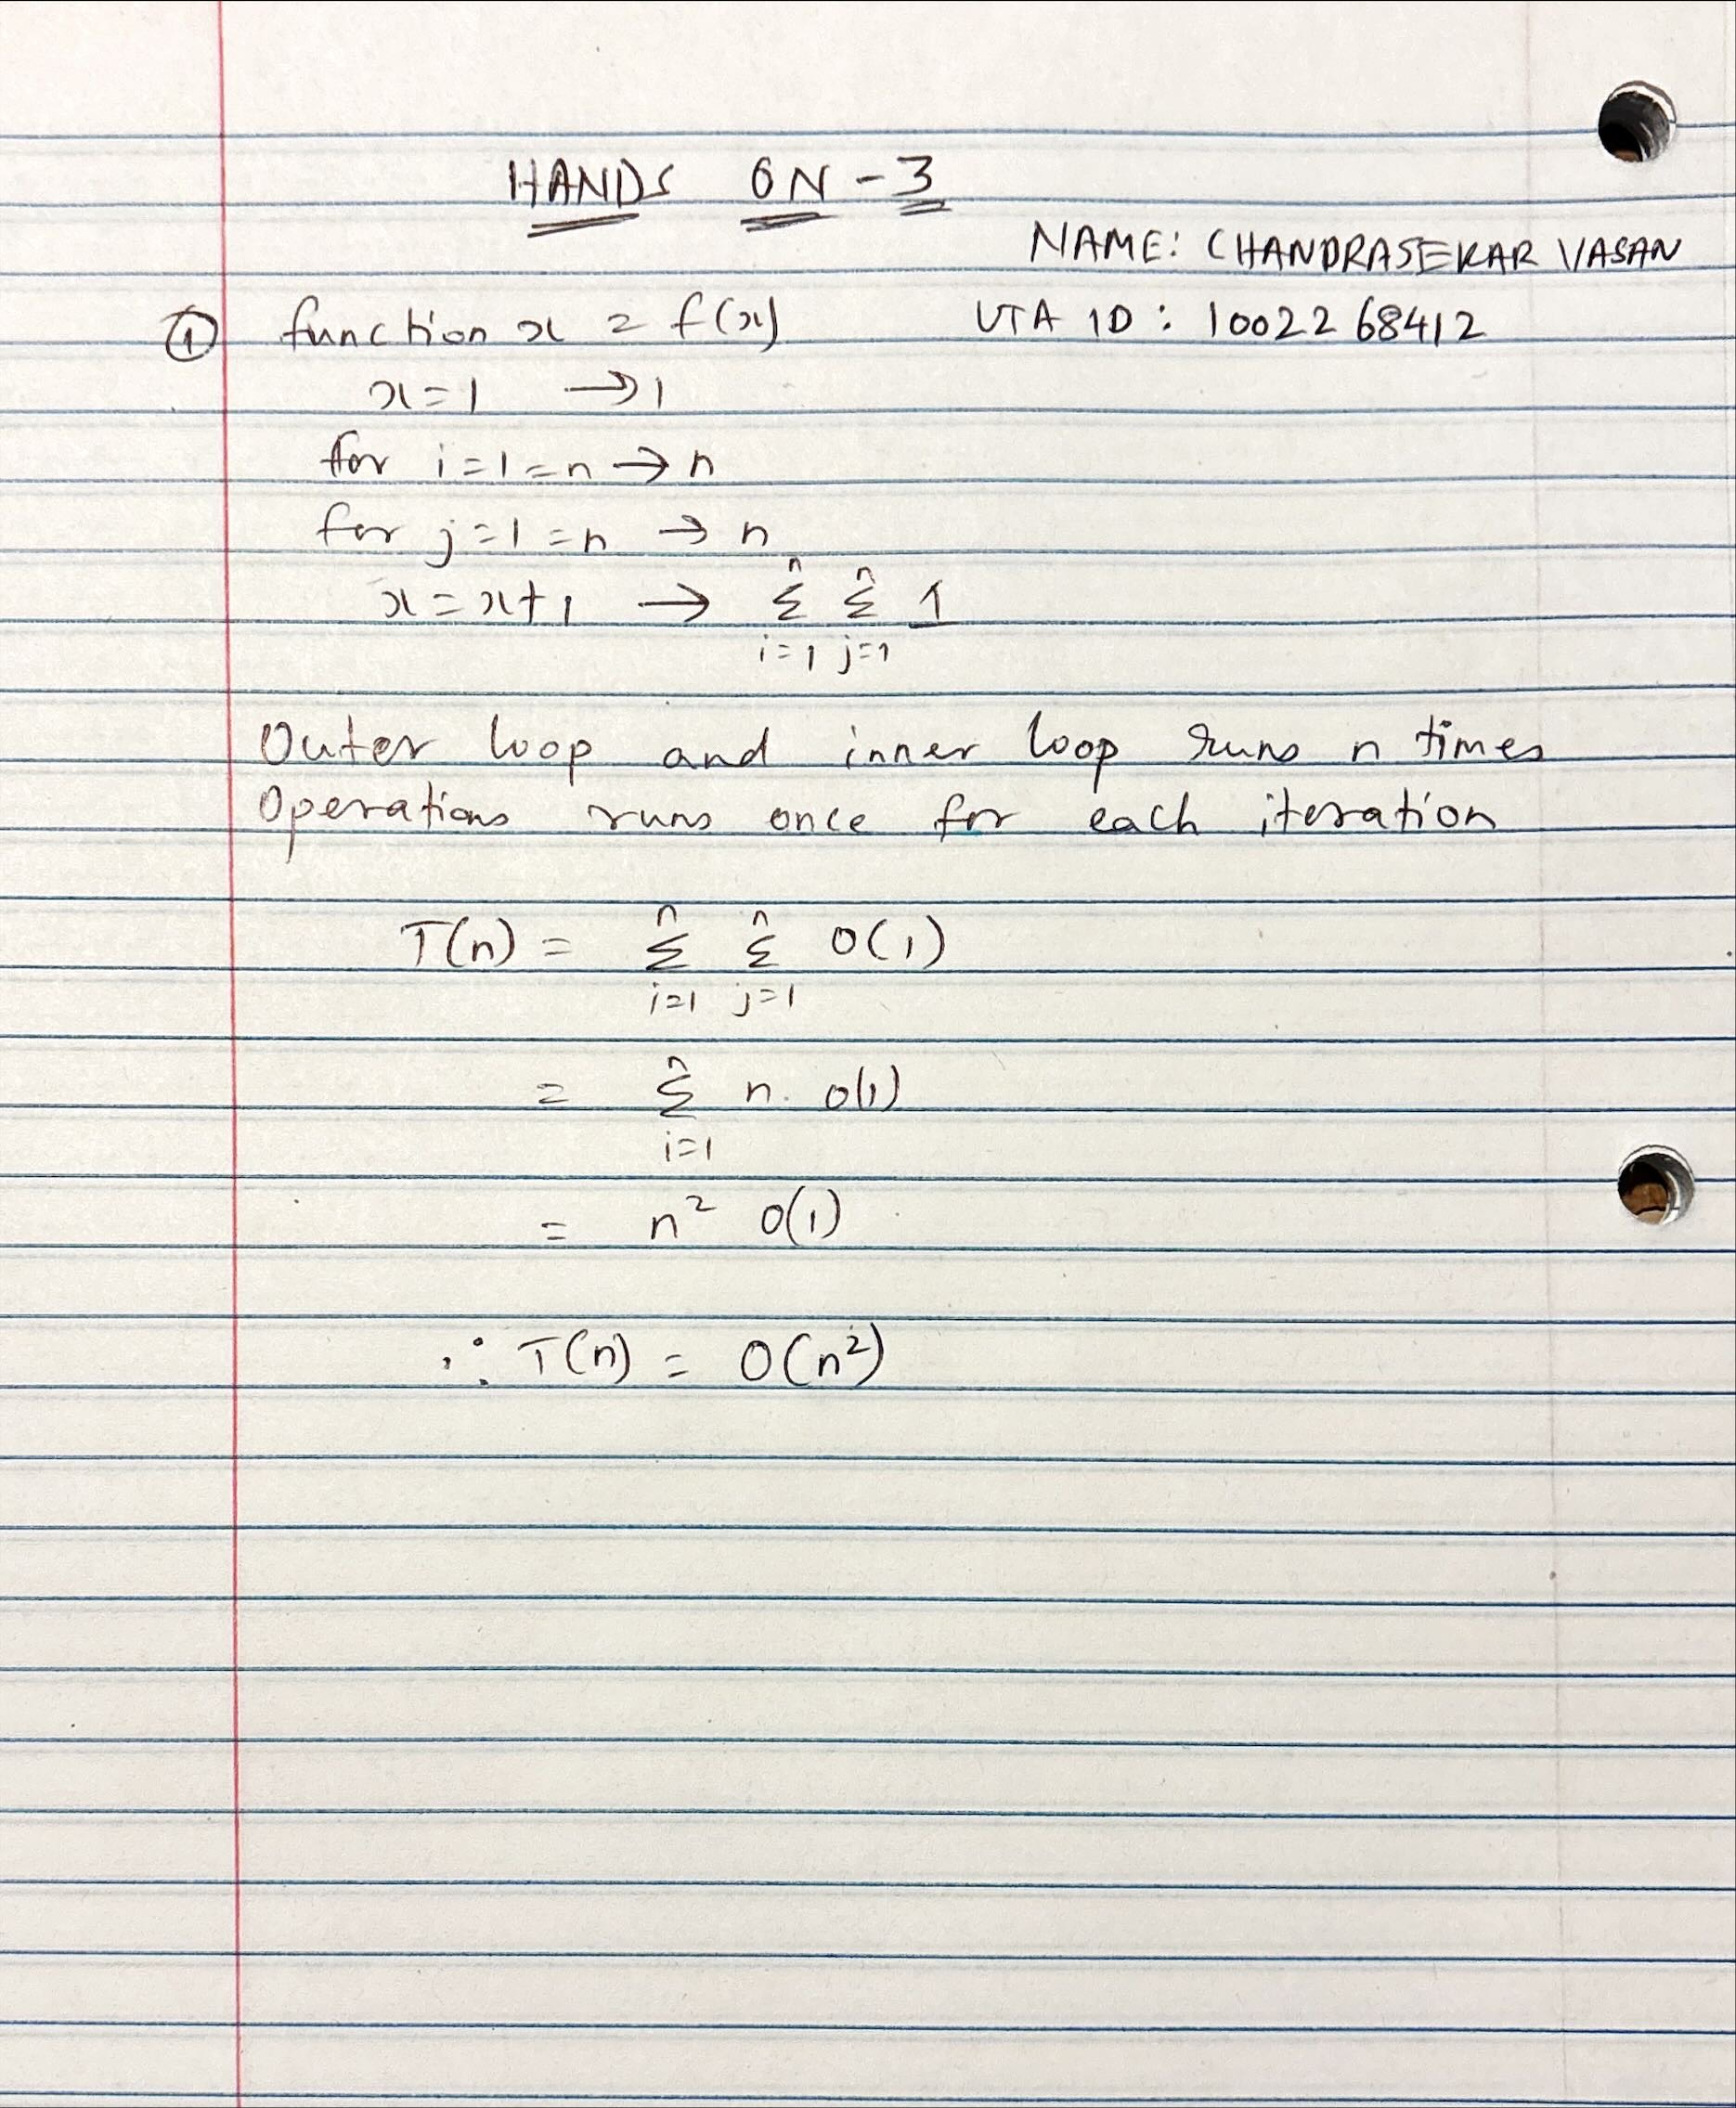 HANDS ON - 3
NAME: CHANDRASEKAR VASAN
① function x = f(x)
UTA ID: 10022 68412
x=1 → 1
for i=1=n → n
for j=1=n → n
x=x+1 → n∑i=1 n∑j=1 1
Outer loop and inner loop runs n times
Operations runs once for each iteration
T(n) = n∑i=1 n∑j=1 O(1)
= n∑i=1 n. O(1)
= n² O(1)
∴ T(n) = O(n²)